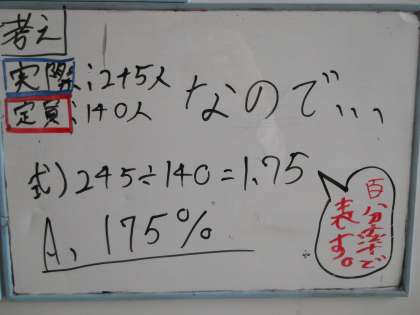 考え
実際;245人
定員:140人
なので、、、
式)245÷140=1.75
A、175%
百分率で
表す。